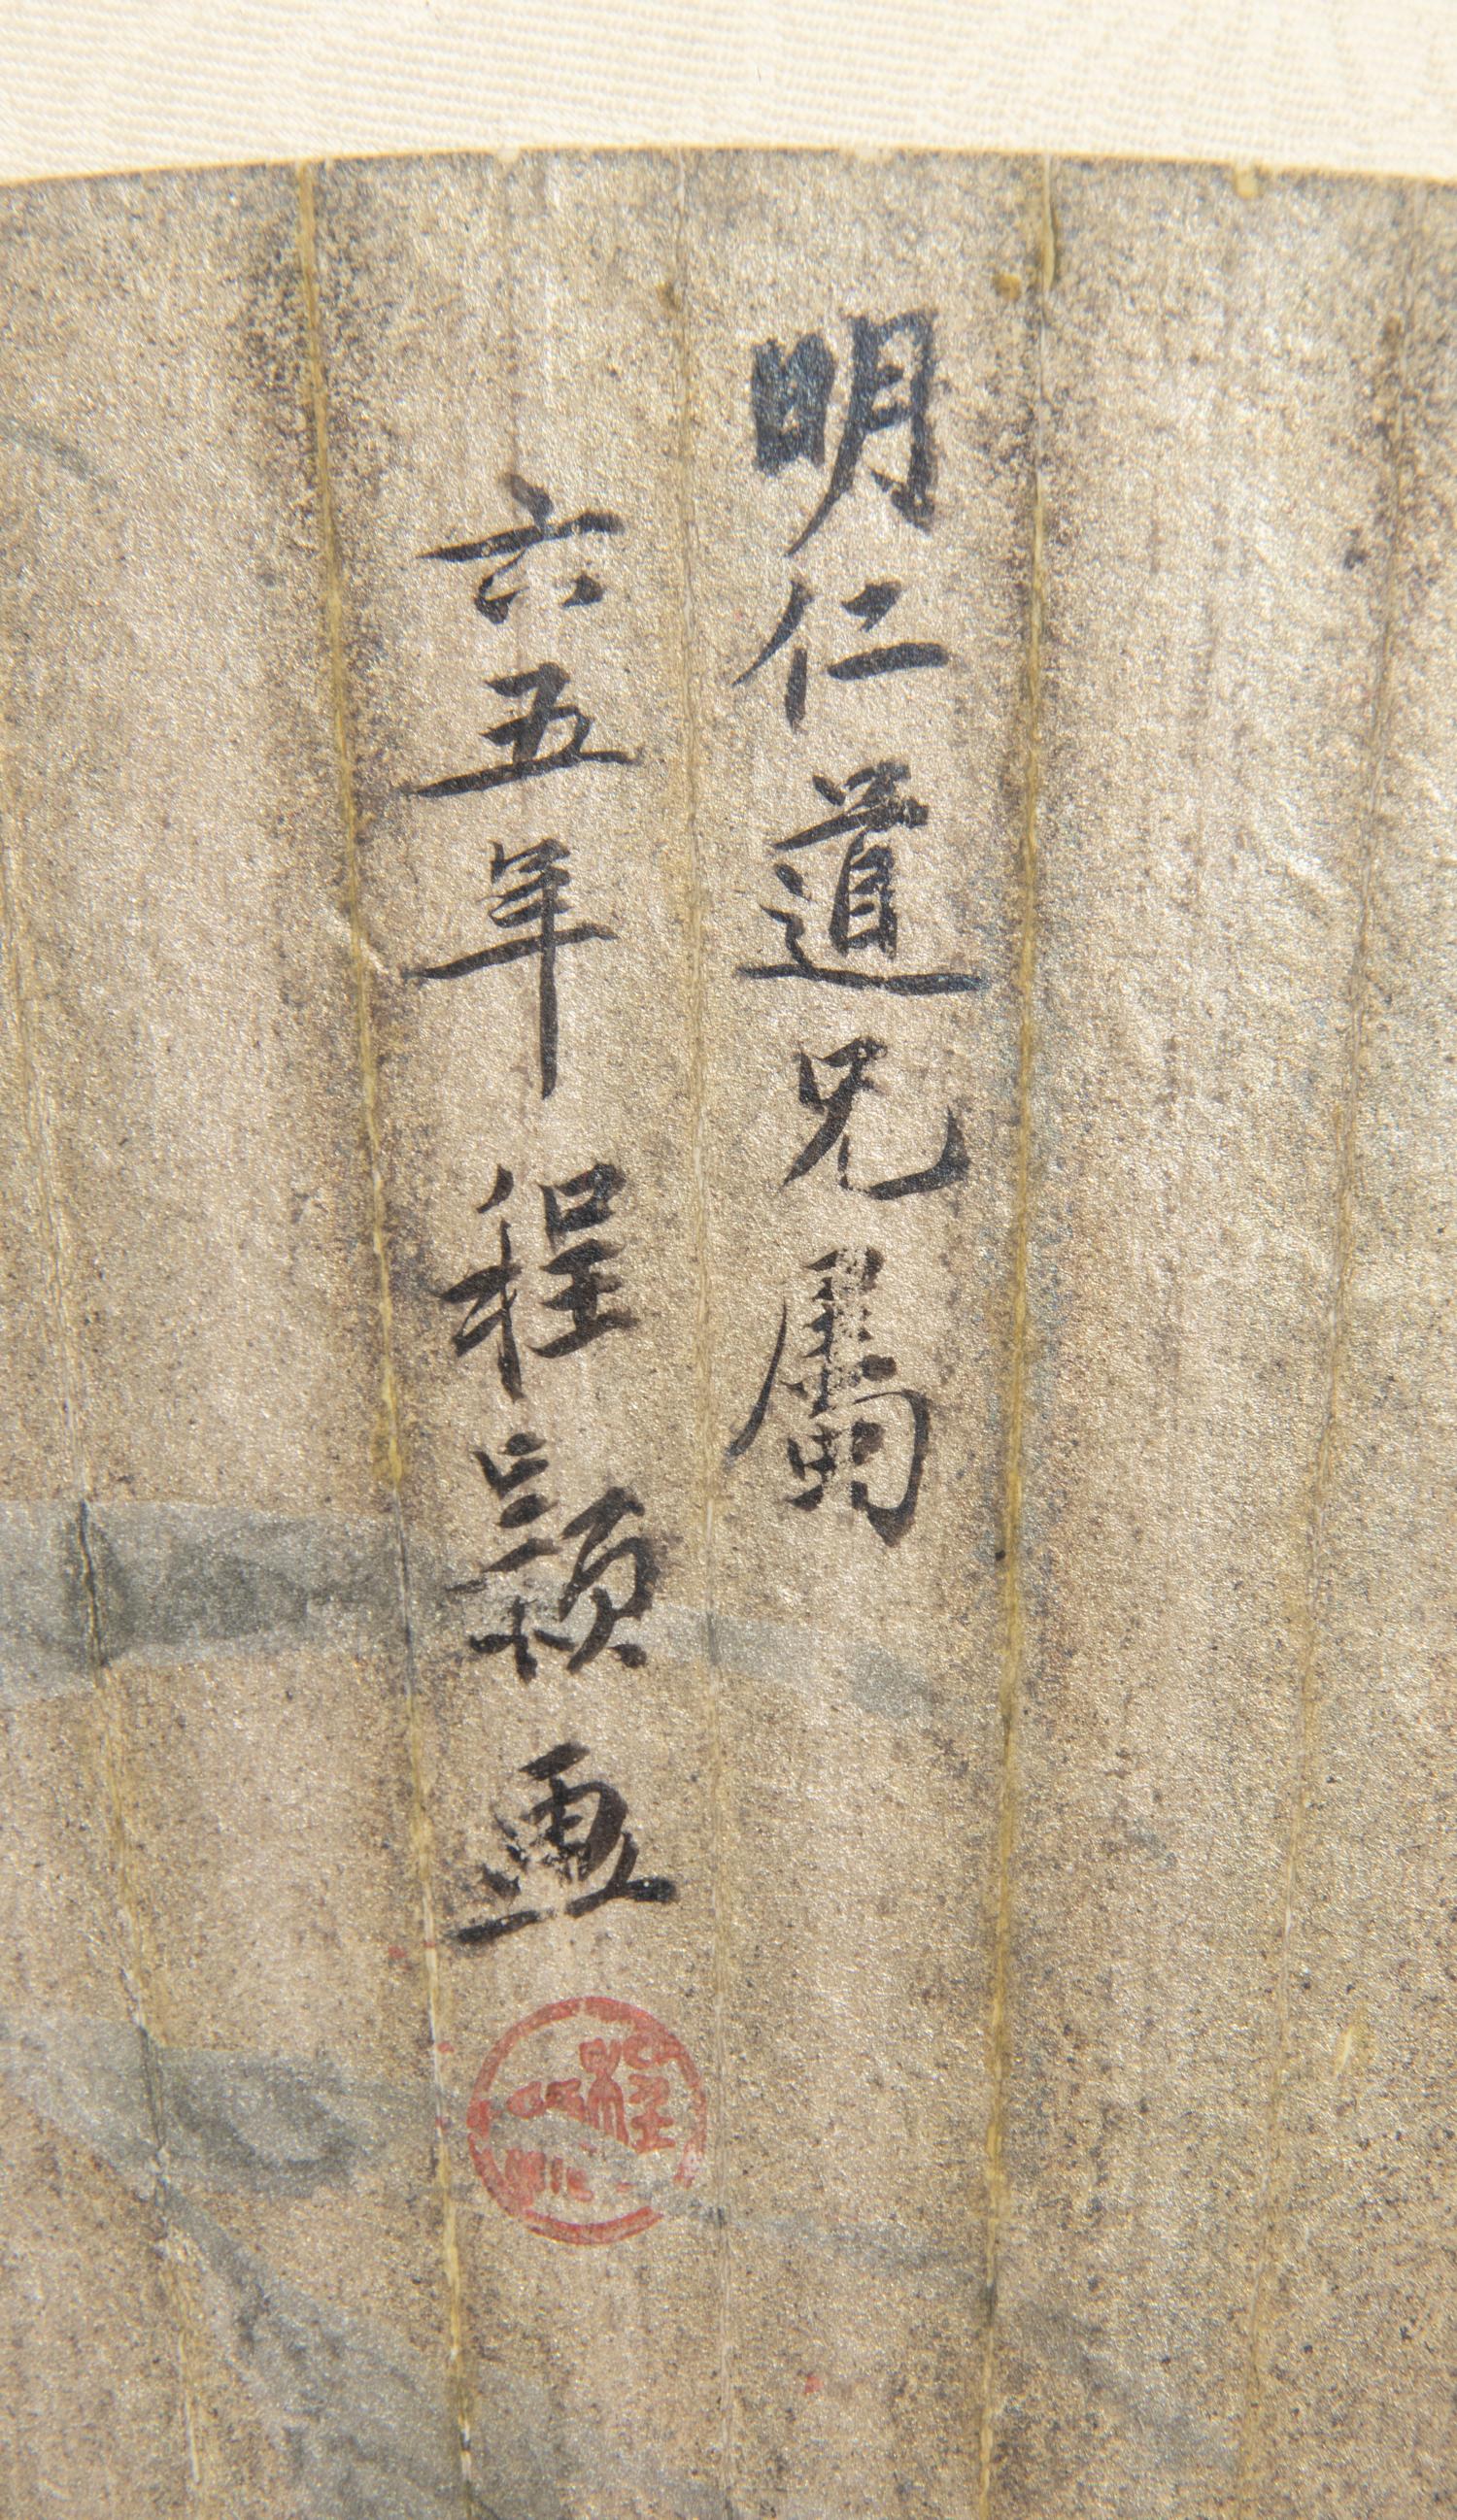 明仁道兄屬
六五年程穎畫